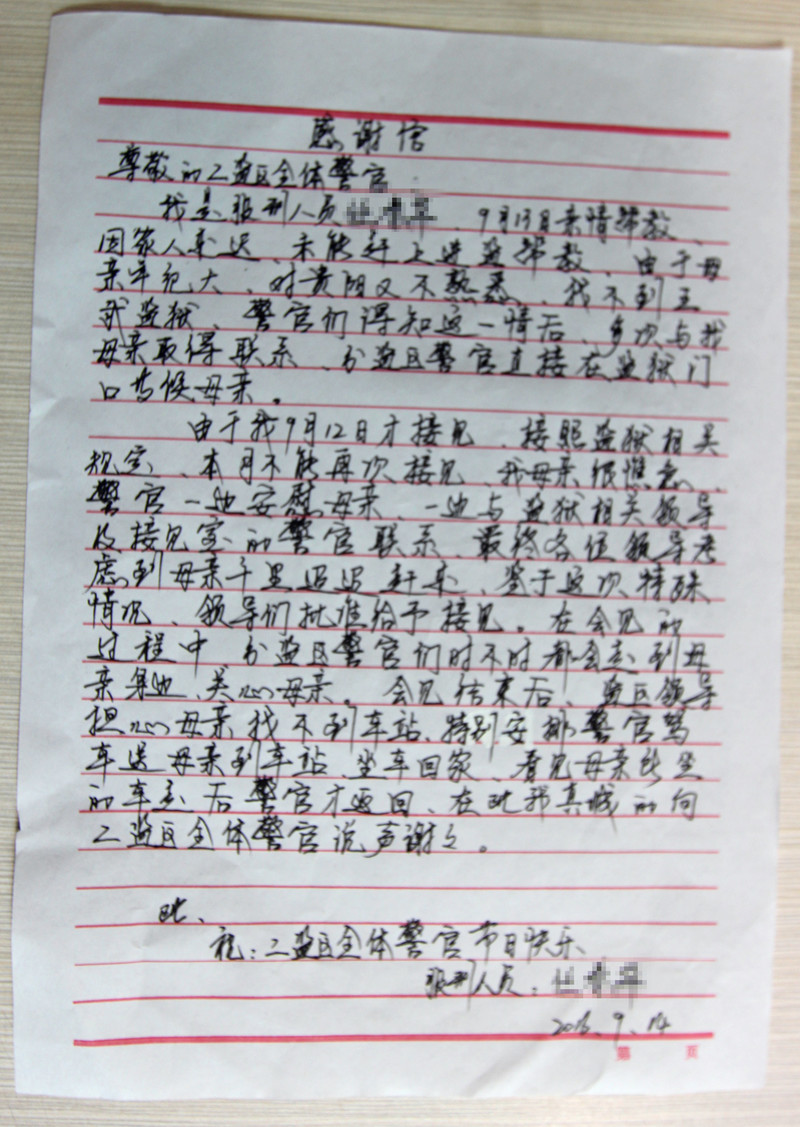 感谢信
尊敬的二监区全体警官
我是服刑人员 、9月13日亲情帮教、
因家人来迟、未能赶上进监帮教、由于母
亲年纪大、对贵阳又不熟悉、找不到王
武监狱、警官们得知这一情后、多次与我
母亲取得联系、分监区警官直接在监狱门
口等候母亲。
由于我9月12日才接见、按照监狱相关
规定、本月不能再次接见、我母亲很憔急、
警官一边安慰母亲、一边与监狱相关领导
及接见室的警官联系、最终各位领导考
虑到母亲千里迢迢赶来、鉴于这次特殊
情况、领导们批准给予接见。在会见的
过程中 分监区警官们时不时都会走到母
亲身边、关心母亲。会见结束后、监区领导
担心母亲找不到车站、特别安排警官驾
车送母亲到车站、坐车回家、看见母亲所坐
的车走后警官才返回、在此我真诚的向
二监区全体警官说声谢谢。
此、
祝：二监区全体警官节日快乐
服刑人员：
9.14
第 页